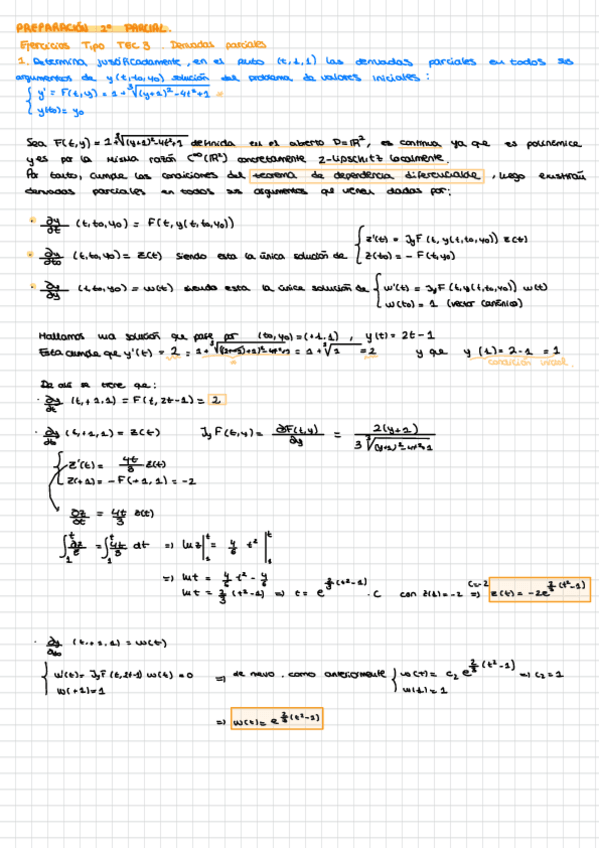 PREPARACIÓN 2º PARCIAL.
Ejercicios Tipo TEC 3. Derivadas parciales
1. Determina justificadamente, en el punto (t,1,1) las derivadas parciales en todos sus
argumentos de y(t,to,yo) solución del problema de valores iniciales:
{ y' = F(t,y) = 1+∛((y+1)²-4t²+1)
y(to) = yo
Sea F(t,y) = 1+∛((y+1)²-4t²+1) definida en el abierto D=ℝ², es continua ya que es polinómica
y es por la misma razón C^∞(ℝ²) concretamente 2-lipschitz localmente.
Por tanto, cumple las condiciones del teorema de dependencia diferenciable, luego existirán
derivadas parciales en todos sus argumentos que vienen dadas por:
• ∂y/∂t (t,to,yo) = F(t,y(t,to,yo))
• ∂y/∂to (t,to,yo) = z(t) siendo esta la única solución de { z'(t) = JyF(t,y(t,to,yo)) z(t)
z(to) = -F(t,yo)
• ∂y/∂y (t,to,yo) = w(t) siendo esta la única solución de { w'(t) = JyF(t,y(t,to,yo)) w(t)
w(to) = 1 (vector canónico)
Hallamos una solución que pase por (to,yo) = (+1,1), y(t) = 2t-1
Esta cumple que y'(t) = 2 = 1+∛((2t-1)+1)²-4t²+1 = 1+∛1 = 2 y que y(1) = 2-1 = 1
condición inicial
De ahí se tiene que:
· ∂y/∂t (t,+1,1) = F(t,2t-1) = 2
· ∂y/∂to (t,+1,1) = z(t) JyF(t,y) = ∂F(t,y)/∂y = 2(y+1) / 3∛((y+1)²-4t²+1)
{ z'(t) = 4t/3 z(t)
z(+1) = -F(+1,1) = -2
∂z/∂t = 4t/3 z(t)
∫₁ᵗ ∂z/z = ∫₁ᵗ 4t/3 dt ⇒ ln z |₁ᵗ = 4/6 t² |₁ᵗ
⇒ ln t = 4/6 t² - 4/6
ln t = 2/3 (t²-1) ⇒ t = e^(2/3(t²-1)) · C con z(1)=-2 ⇒ C=-2 z(t) = -2e^(2/3(t²-1))
· ∂y/∂yo (t,+1,1) = w(t)
{ w'(t) = JyF(t,2t-1) w(t) = 0 ⇒ de nuevo, como anteriormente { w(t) = c₂ e^(2/3(t²-1)) ⇒ c₂=1
w(+1) = 1 w(1) = 1
⇒ w(t) = e^(2/3(t²-1))